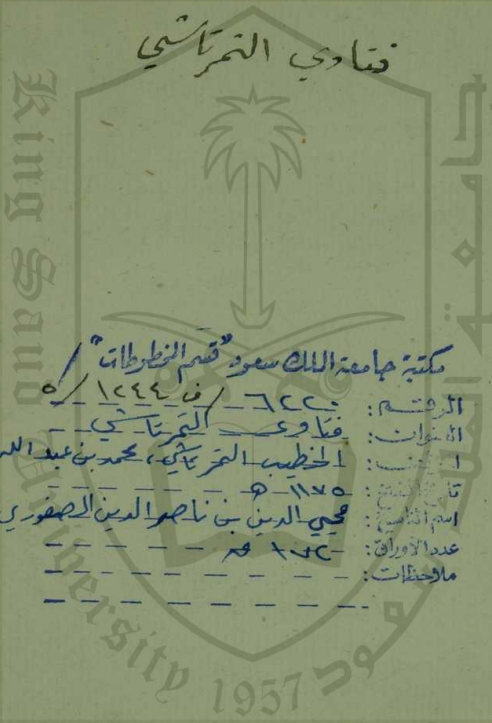 فتاوي التمرتاشي
مكتبة جامعة الملك سعود "قسم المخطوطات"
الرقم: ٦٢٢٠ / ف ١٢٤٤ / ٥
العنوان: فتاوى التمرتاشي
المؤلف: الخطيب التمرتاشي، محمد بن عبد الله
تاريخ النسخ: ١١٧٥ هـ
اسم الناسخ: محيي الدين بن ناصر الدين الصفوري
عدد الأوراق: ١٧٢ ق
ملاحظات:
King Saud University
1957